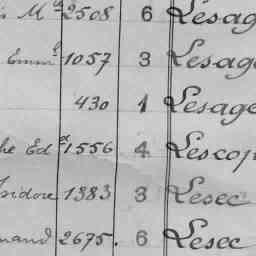 s Mel 2508 6 Lesag
Emml 1057 3 Lesag
430 1 Lesage
he Ed 1556 4 Lescop
sidore 1383 3 Lesec
mand 2675. 6 Lesec